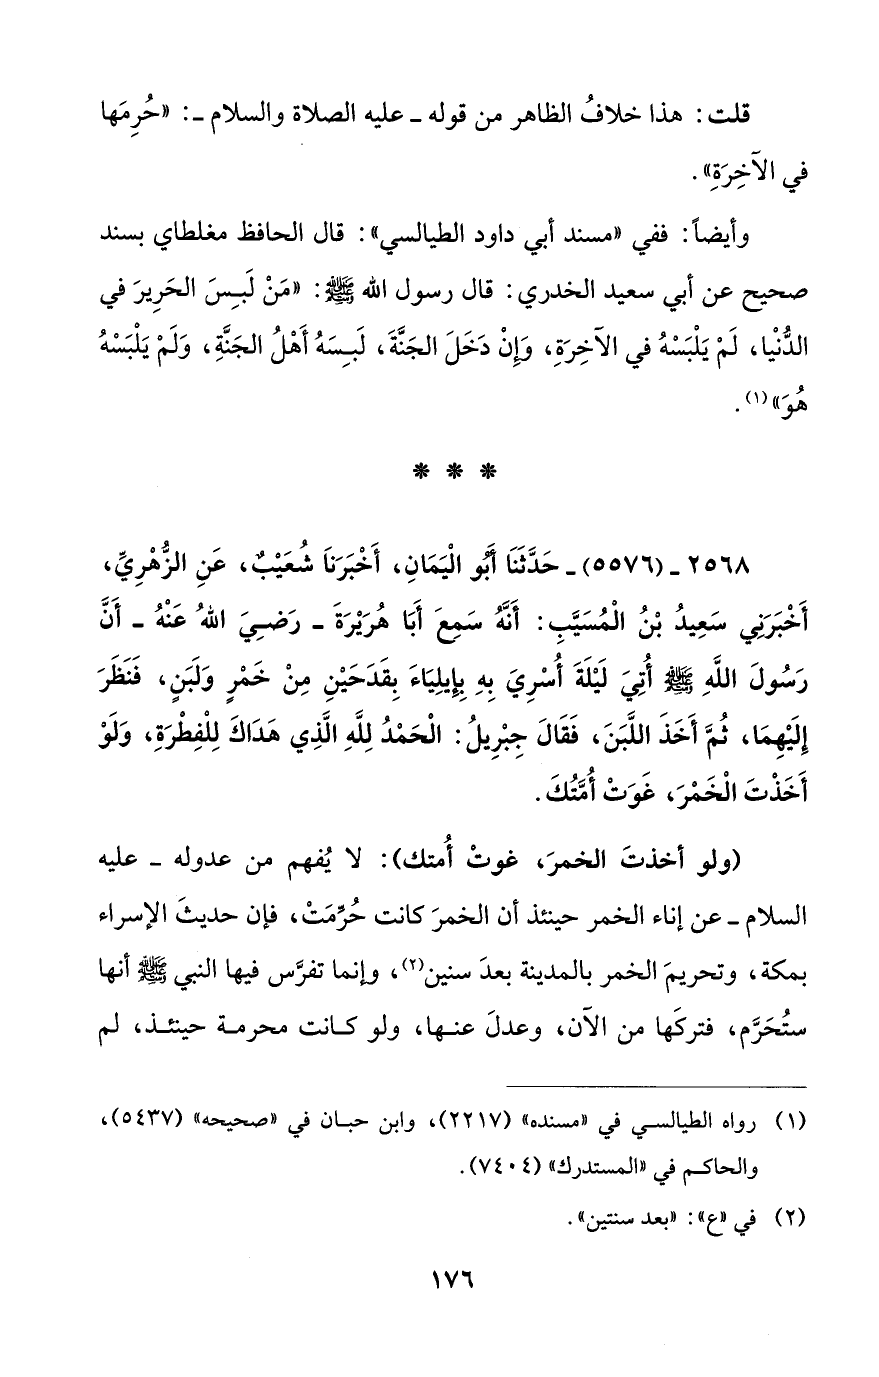 قلت: هذا خلافُ الظاهر من قوله ـ عليه الصلاة والسلام ـ: «حُرِمَها
في الآخِرَةِ».
وأيضاً: ففي «مسند أبي داود الطيالسي»: قال الحافظ مغلطاي بسند
صحيح عن أبي سعيد الخدري: قال رسول الله ﷺ: «مَنْ لَبِسَ الحَرِيرَ في
الدُّنْيا، لَمْ يَلْبَسْهُ في الآخِرَةِ، وَإِنْ دَخَلَ الجَنَّةَ، لَبِسَهُ أَهْلُ الجَنَّةِ، وَلَمْ يَلْبَسْهُ
هُوَ»(١).
* * *
٢٥٦٨ ـ (٥٥٧٦) ـ حَدَّثَنَا أَبُو الْيَمَانِ، أَخْبَرَنَا شُعَيْبٌ، عَنِ الزُّهْرِيِّ،
أَخْبَرَنِي سَعِيدُ بْنُ الْمُسَيَّبِ: أَنَّهُ سَمِعَ أَبَا هُرَيْرَةَ ـ رَضِيَ اللهُ عَنْهُ ـ أَنَّ
رَسُولَ اللَّهِ ﷺ أُتِيَ لَيْلَةَ أُسْرِيَ بِهِ بِإِيلِيَاءَ بِقَدَحَيْنِ مِنْ خَمْرٍ وَلَبَنٍ، فَنَظَرَ
إِلَيْهِمَا، ثُمَّ أَخَذَ اللَّبَنَ، فَقَالَ جِبْرِيلُ: الْحَمْدُ لِلَّهِ الَّذِي هَدَاكَ لِلْفِطْرَةِ، وَلَوْ
أَخَذْتَ الْخَمْرَ، غَوَتْ أُمَّتُكَ.
(ولو أخذتَ الخمرَ، غوتْ أُمتك): لا يُفهم من عدوله ـ عليه
السلام ـ عن إناء الخمر حينئذ أن الخمرَ كانت حُرِّمَتْ، فإن حديثَ الإسراء
بمكة، وتحريمَ الخمر بالمدينة بعدَ سنين(٢)، وإنما تفرَّس فيها النبي ﷺ أنها
ستُحَرَّم، فتركَها من الآن، وعدلَ عنها، ولو كانت محرمة حينئذ، لم
(١) رواه الطيالسي في «مسنده» (٢٢١٧)، وابن حبان في «صحيحه» (٥٤٣٧)،
والحاكم في «المستدرك» (٧٤٠٤).
(٢) في «ع»: «بعد سنتين».
١٧٦